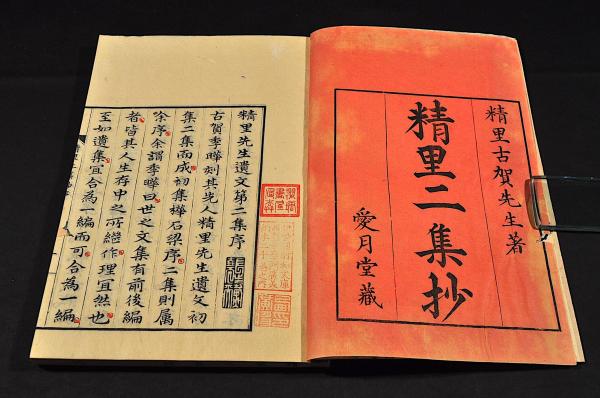 精里古賀先生著
精里二集抄
愛月堂藏
精里先生遺文第二集序
古賀季曄刻其先人精里先生遺文初
集二集而成初集樺石梁序二集則属
余序余謂季曄曰世之文集有前後編
者皆其人生存中之所繼作理宜然也
至如遺集宜合為一編而可合為一編